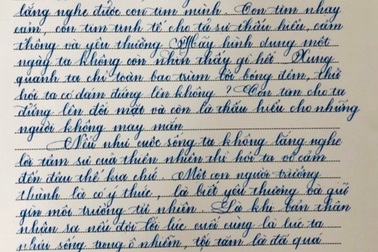 lắng nghe được con tim mình. Con tim nhạy
cảm, con tim tinh tế cho ta sự thấu hiểu, cảm
thông và yêu thương. Hãy hình dung một
ngày ta không còn nhìn thấy gì hết. Xung
quanh ta chỉ toàn bao trùm tối bóng đêm, thử
hỏi ta có dám đứng lên không? Con tim cho ta
đứng lên đối mặt và còn là thấu hiểu cho những
người không may mắn.
Nếu như cuộc sống ta không lắng nghe
lời tâm sự của thiên nhiên thì hỏi ta vô cảm
đến đâu thế kia chứ. Một con người trưởng
thành là có ý thức, là biết yêu thương và giữ
gìn môi trường tự nhiên. Là khi bản thân
nhận ra nếu đôi lúc cuối cùng là lúc ta
phải sống trong ô nhiễm, tội tâm là đã quá